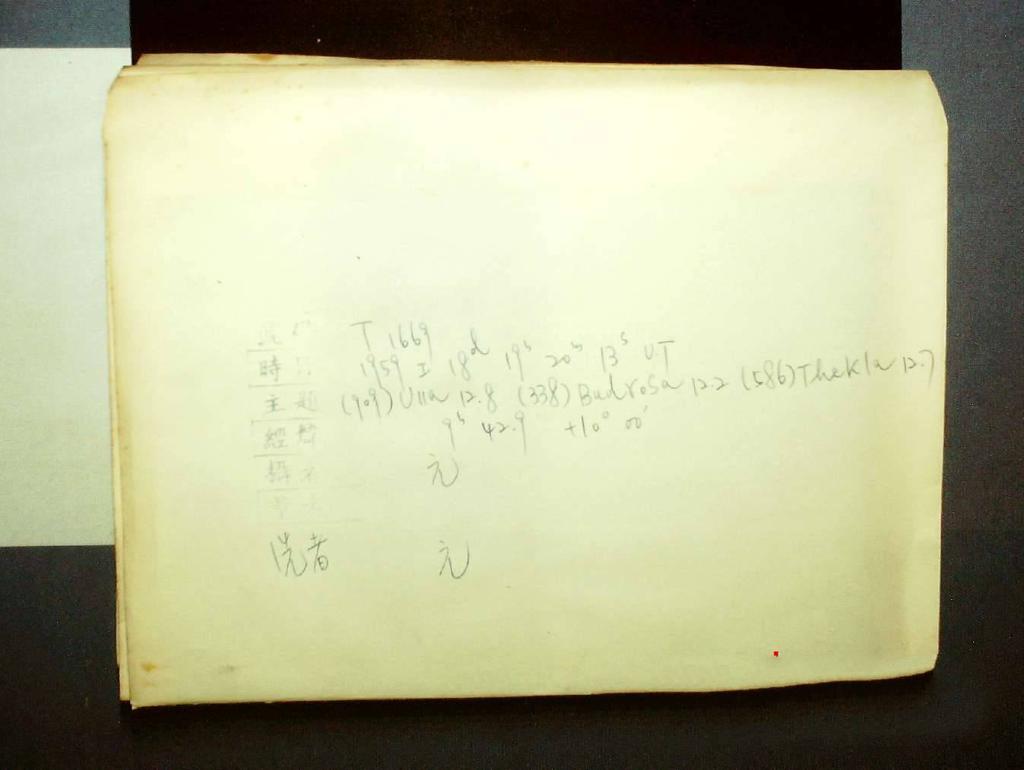 T 1669
時 1959 I 18d 19h 20m 13s U.T
主題 (909) Ulla 12.8 (338) Budrosa 12.2 (586) Thekla 12.7
經 9h 42.9 +10° 00′
元
洗者 元